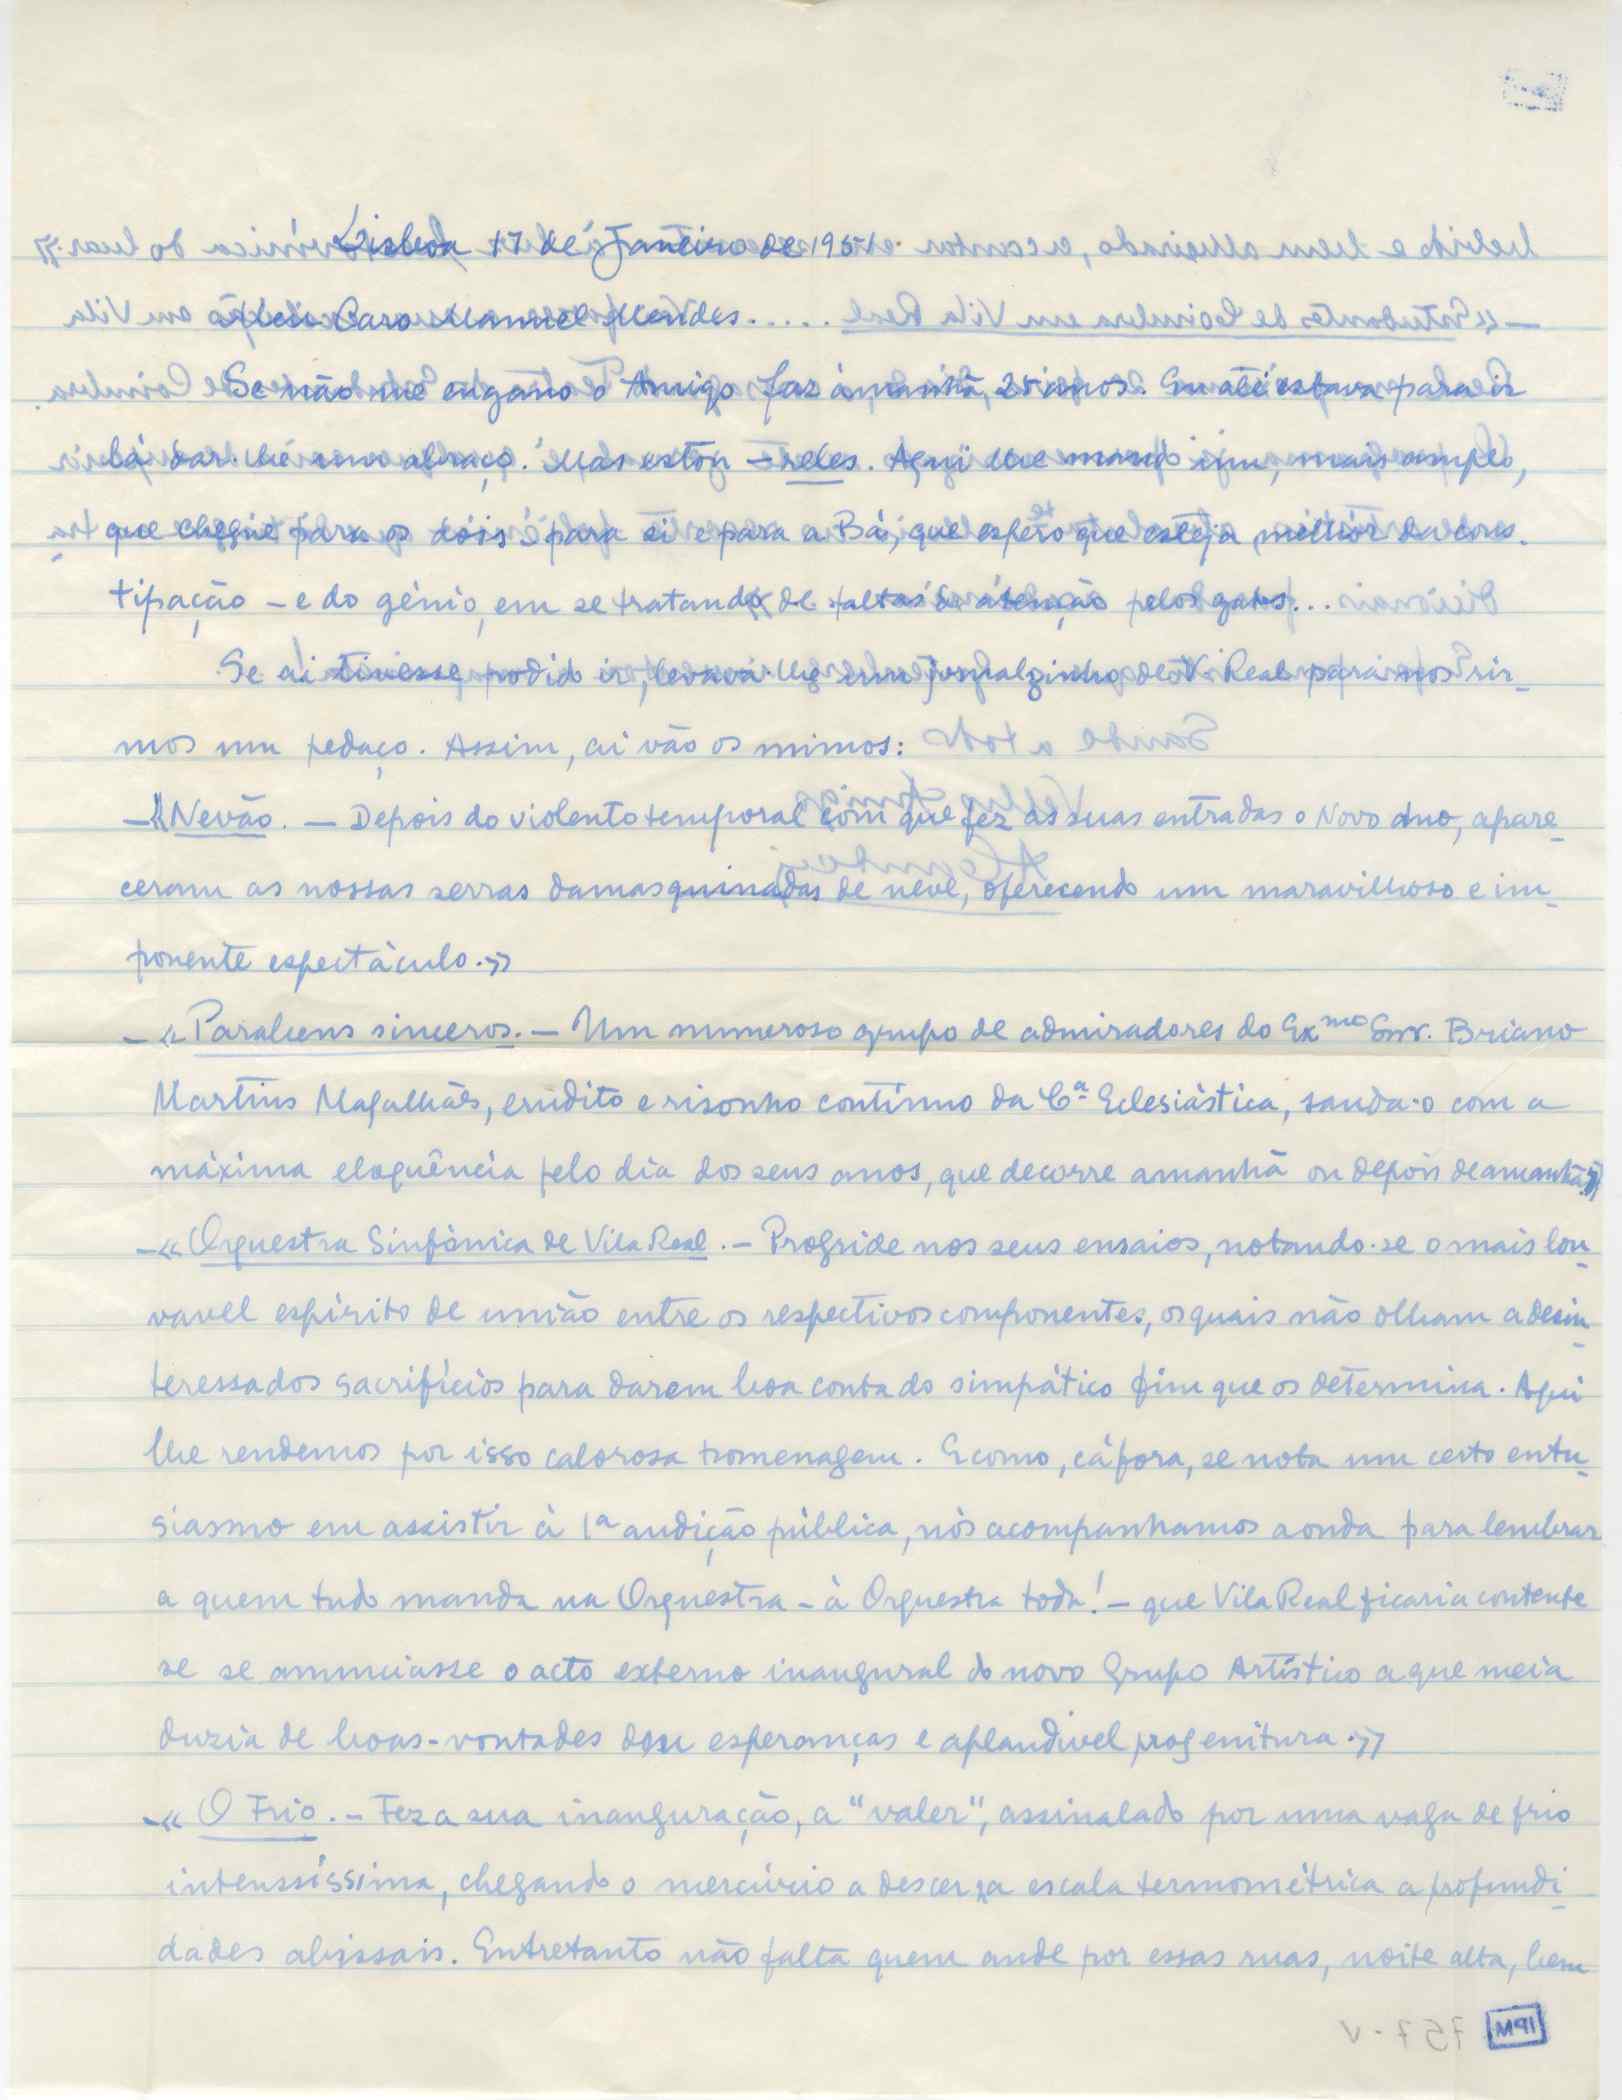 Lisboa 17 de Janeiro de 1951.
Meu Caro Manuel Mendes
Se não me engano o Amigo faz àmanhã, 25 anos. Eu até estava para ir
lá dar-lhe um abraço. Mas estou – reles. Aqui lhe mando um, mais amplo,
que chegue para os dois: para si e para a Bá, que espero que esteja melhor da cons-
tipação – e do génio, em se tratando de faltas de atenção pelos gatos...
Se aí tivesse podido ir, levava-lhe um jornalzinho de V. Real para nos rir-
mos um pedaço. Assim, aí vão os mimos:
– «Nevão. – Depois do violento temporal com que fez as suas entradas o Novo Ano, apare-
ceram as nossas serras damasquinadas de neve, oferecendo um maravilhoso e im-
ponente espectáculo.»
– «Parabens sinceros. – Um numeroso grupo de admiradores do Exmo Snr. Briano
Martins Magalhães, erudito e risonho contínuo da Cª Eclesiástica, sauda-o com a
máxima eloquência pelo dia dos seus anos, que decorre amanhã ou depois de amanhã.»
– «Orquestra Sinfónica de Vila Real. – Progride nos seus ensaios, notando-se o mais lou-
vavel espírito de união entre os respectivos componentes, os quais não olham a desin-
teressados sacrifícios para darem boa conta do simpático fim que os determina. Aqui
lhe rendemos por isso calorosa homenagem. E como, cá fora, se nota um certo entu-
siasmo em assistir à 1ª audição pública, nós acompanhamos a onda para lembrar
a quem tudo manda na Orquestra – à Orquestra toda! – que Vila Real ficaria contente
se se anunciasse o acto externo inaugural do novo Grupo Artístico a que meia
duzia de boas-vontades deu esperanças e aplaudivel progenitura.»
– «O Frio. – Fez a sua inauguração, a "valer", assinalado por uma vaga de frio
intenssíssima, chegando o mercúrio a descer na escala termométrica a profundi-
dades abissais. Entretanto não falta quem ande por essas ruas, noite alta, bem
757-V
IPM